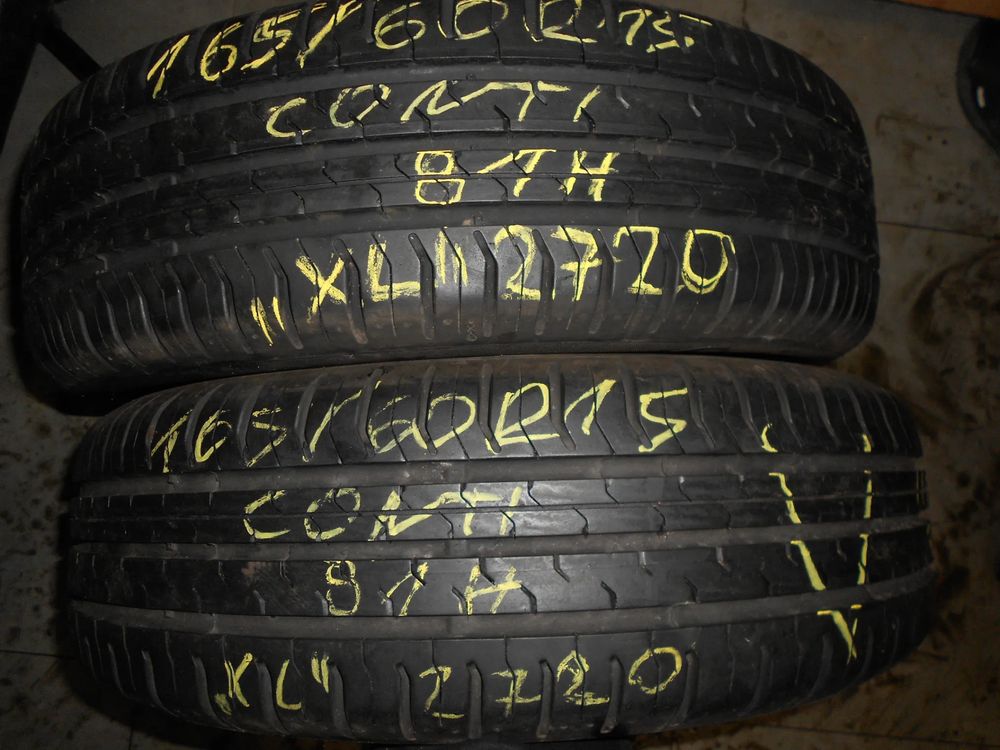 165/60R15
CONTI
81H
"XL" 2720
165/60R15
CONTI
81H
"XL" 2720
V